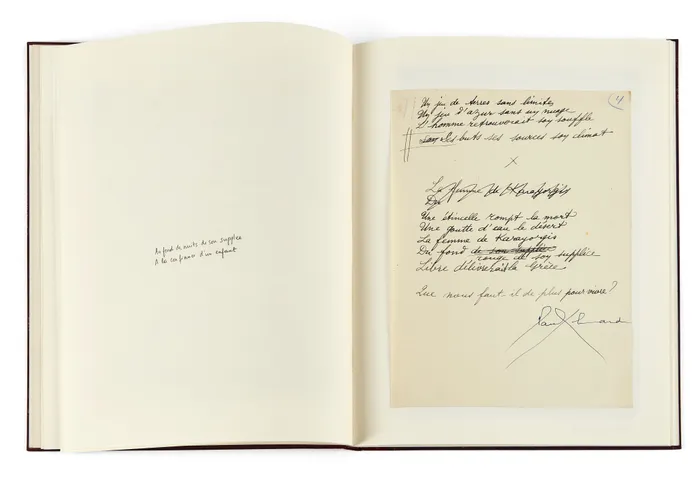 Au fond de nuits de son supplice
A la confiance d'un enfant
4
Un jeu de terres sans limites
Un jeu d'azur sans un nuage
L'homme retrouverait son souffle
son Ses buts ses sources son climat
×
La femme de Karayorgis
Du
Une étincelle rompt la mort
Une goutte d'eau le désert
La femme de Karayorgis
Du fond de son supplice
rouge de son supplice
Libre délivrerait la Grèce
Que nous faut-il de plus pour vivre?
Paul Eluard